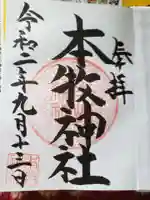 奉拝
本牧神社
令和二年九月十三日